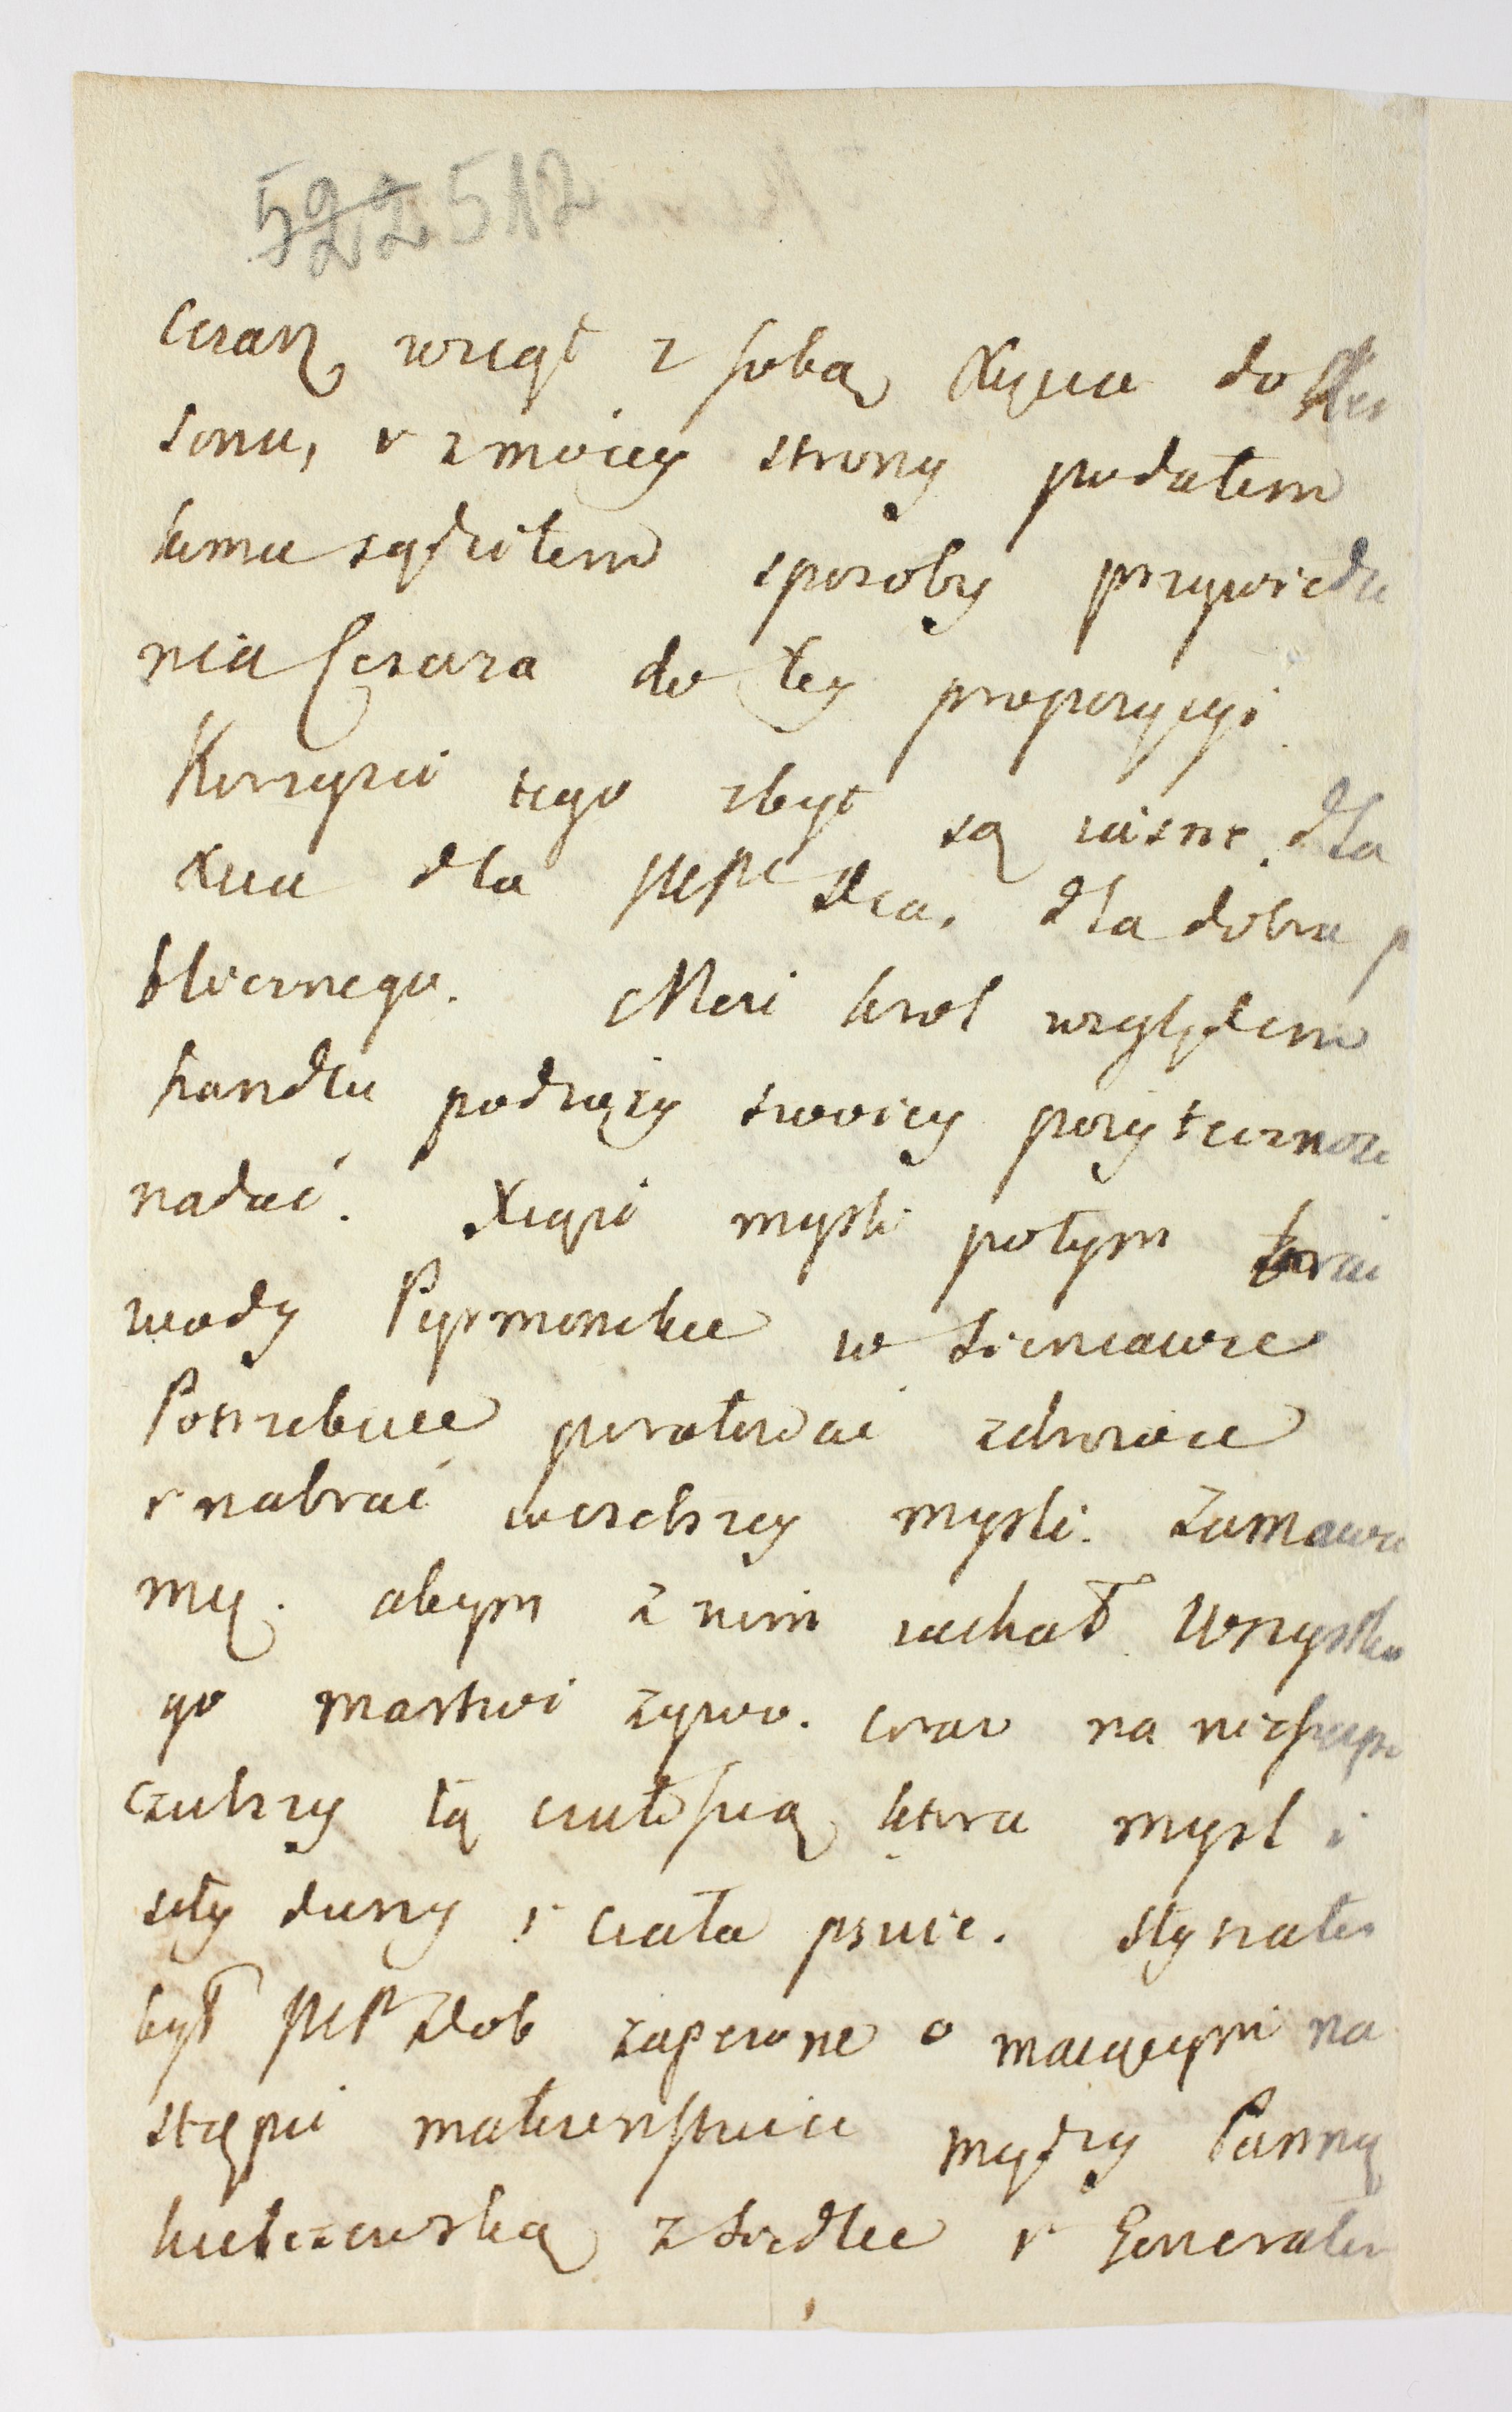 522 512
Cesarz wziął z sobą Xięcia do Ker
sonu, y z moiey strony podałem
kemu sądziłem sposoby przywiedze
nia Cesarza do tey propozycyi.
Korzyści tego zbyt są iasne. dla
Xcia dla dla dobra p
blicznego. Może krol względem
handlu podróży swoiey pożyteczność
nadać. Xiąże mysli potym brać
wody Pyrmonckie w Sieniawie
Potrzebuie poratować zdrowie
y nabrać mysli. Zamawia
mię. abym z nim iachał. Wszystko
go martwi żywo. coraz na
czulszy tą czułością która mysl i
siły duszy y ciała psuie. Słyszałeś
był dob zapewne o maiącym na
stąpić małżeństwie między Panną
z Siedlec y Generałem